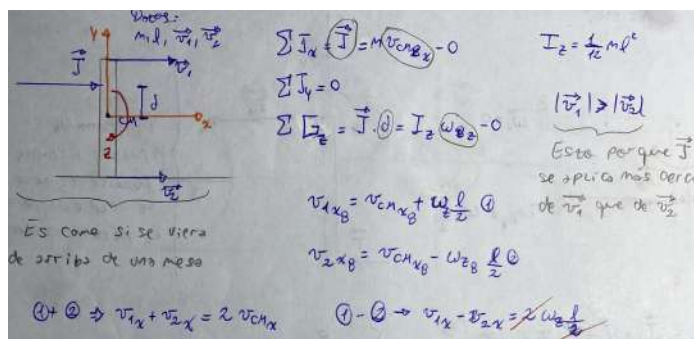 Datos:
m, l, v⃗₁, v⃗₂
Y
J⃗
v⃗₁
d
CM
x
z
v⃗₂
Es como si se viera
de arriba de una mesa
∑ J⃗ₓ = J⃗ = M v_CM₈ₓ - 0
∑ J⃗y = 0
= J⃗ · d = I_z ω₈z - 0
I_z = 1/12 m l²
|v⃗₁| > |v⃗₂|
Esto porque J⃗
se aplica más cerca
de v⃗₁ que de v⃗₂
v₁ₓ₈ = v_CMₓ₈ + ω_z l/2 ①
v₂ₓ₈ = v_CMₓ₈ - ω_z₈ l/2 ②
①+② ⇒ v₁ₓ + v₂ₓ = 2 v_CMₓ
①-② → v₁ₓ - v₂ₓ = 2 ω_z l/2